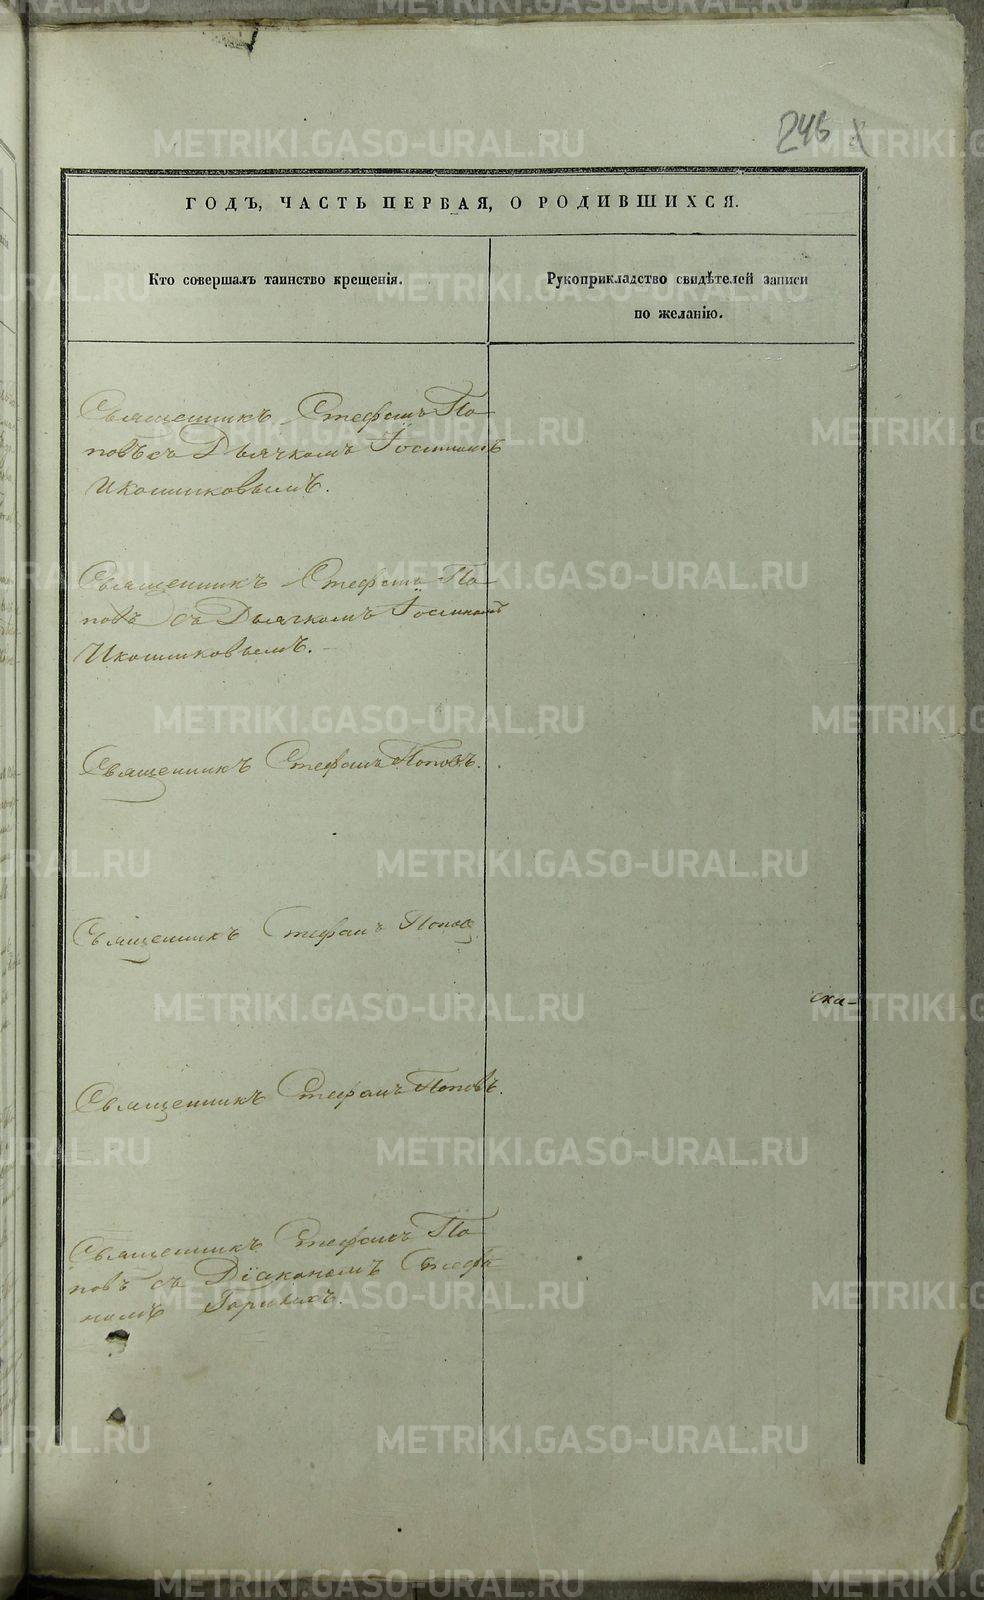 246
ГОДЪ, ЧАСТЬ ПЕРВАЯ, О РОДИВШИХСЯ.
Кто совершалъ таинство крещенія.
Рукоприкладство свидѣтелей записи
по желанію.
Священникъ Стефанъ По-
повъ съ Дьячкомъ
Иконниковымъ.
Священникъ Стефанъ По-
повъ съ Дьячкомъ
Иконниковымъ.
Священникъ Стефанъ Поповъ.
Священникъ Стефанъ Поповъ
ска-
Священникъ Стефанъ Поповъ.
Священникъ Стефанъ По
повъ съ Діакономъ Стефа
номъ
METRIKI.GASO-URAL.RU